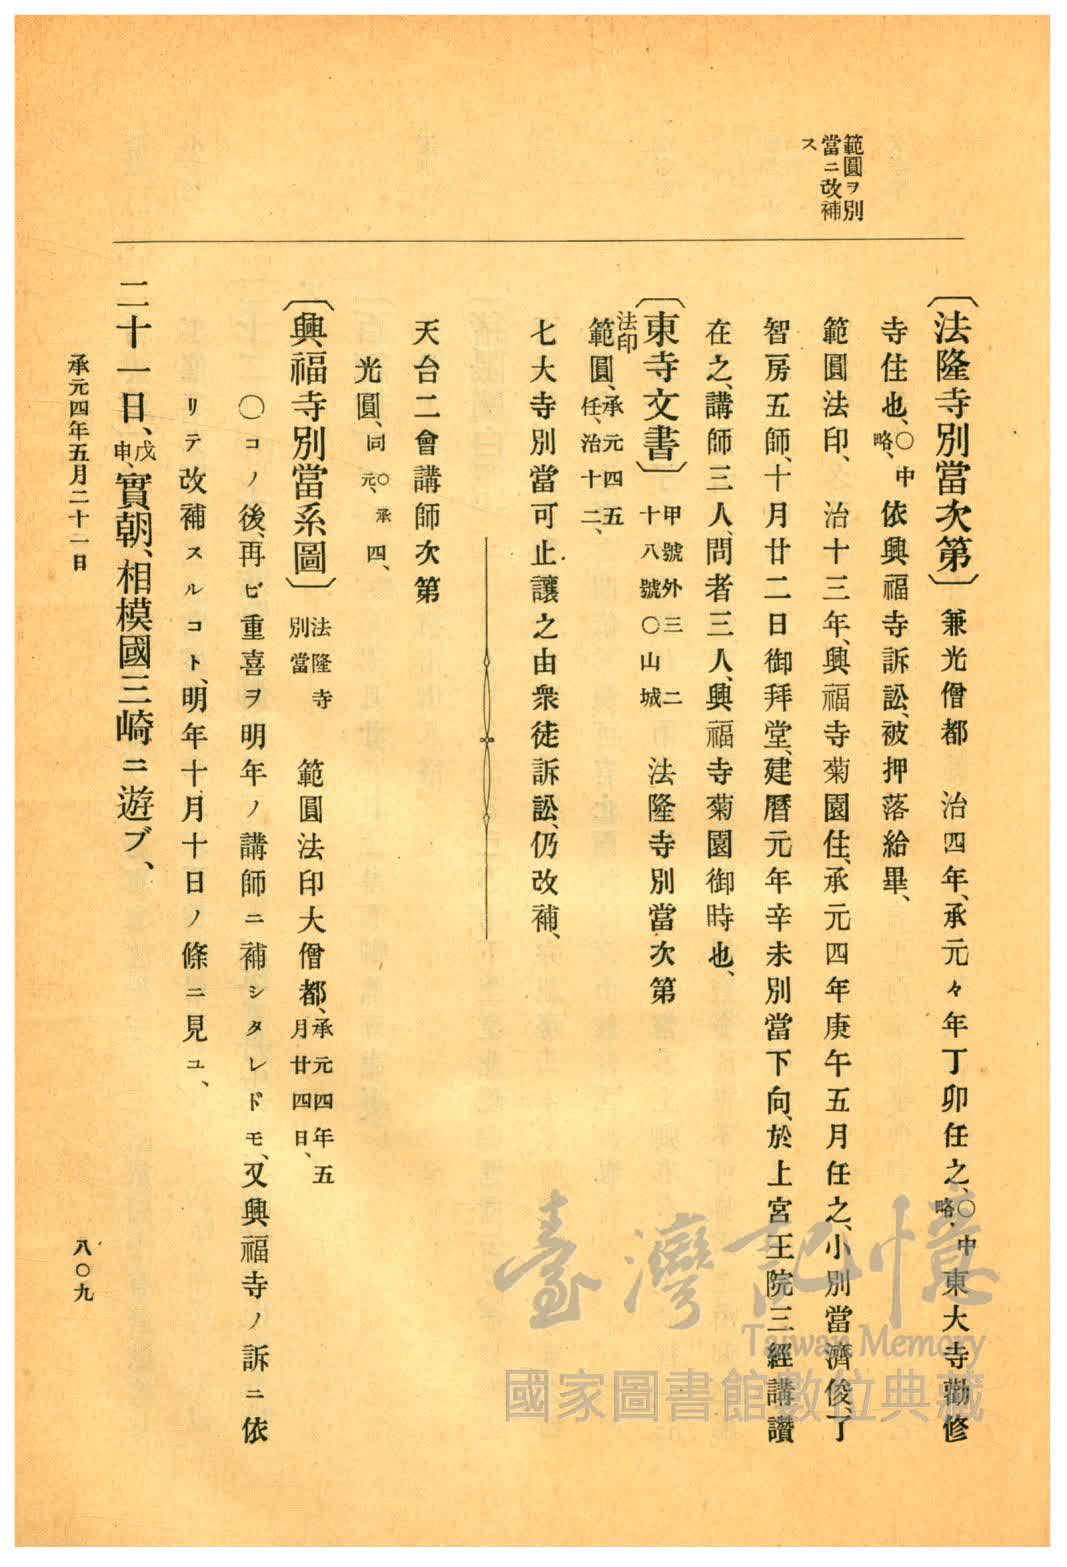 範圓ヲ別
當ニ改補
ス
〔法隆寺別當次第〕兼光僧都　治四年、承元々年丁卯任之、〇中略、東大寺勸修
寺住也、〇中略、依興福寺訴訟、被押落給畢、
範圓法印、　治十三年、興福寺菊園住、承元四年庚午五月任之、小別當濟俊、了
智房五師、十月廿二日御拜堂、建曆元年辛未別當下向、於上宮王院三經講讚
在之、講師三人、問者三人、興福寺菊園御時也、
〔東寺文書〕甲號外三二十八號〇山城　法隆寺別當次第
法印
範圓、承元四五任、治十二、
七大寺別當可止讓之由衆徒訴訟、仍改補、
天台二會講師次第
光圓、同〇承元、四、
〔興福寺別當系圖〕法隆寺別當　範圓法印大僧都、承元四年五月廿四日、
〇コノ後、再ビ重喜ヲ明年ノ講師ニ補シタレドモ、又興福寺ノ訴ニ依
リテ改補スルコト、明年十月十日ノ條ニ見ユ、
二十一日、戊申、實朝、相模國三崎ニ遊ブ、
承元四年五月二十一日
八〇九
臺灣記憶
Taiwan Memory
國家圖書館數位典藏